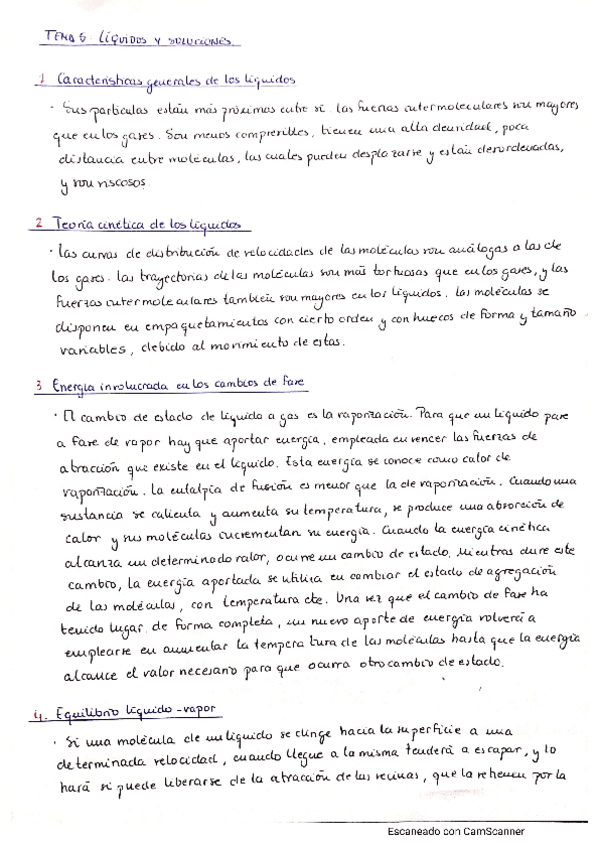 TEMA 5: LÍQUIDOS Y SOLUCIONES.
1 Características generales de los líquidos
· Sus partículas están más próximas entre sí. Las fuerzas intermoleculares son mayores
que en los gases. Son menos compresibles, tienen una alta densidad, poca
distancia entre moléculas, las cuales pueden desplazarse y están desordenadas,
y son viscosos.
2 Teoría cinética de los líquidos
· Las curvas de distribución de velocidades de las moléculas son análogas a las de
los gases. Las trayectorias de las moléculas son más tortuosas que en los gases, y las
fuerzas intermoleculares también son mayores en los líquidos. Las moléculas se
disponen en empaquetamientos con cierto orden y con huecos de forma y tamaño
variables, debido al movimiento de estas.
3 Energía involucrada en los cambios de fase
· El cambio de estado de líquido a gas es la vaporización. Para que un líquido pase
a fase de vapor hay que aportar energía, empleada en vencer las fuerzas de
atracción que existe en el líquido. Esta energía se conoce como calor de
vaporización. La entalpía de fusión es menor que la de vaporización. Cuando una
sustancia se calienta y aumenta su temperatura, se produce una absorción de
calor y sus moléculas incrementan su energía. Cuando la energía cinética
alcanza un determinado valor, ocurre un cambio de estado. Mientras dure este
cambio, la energía aportada se utiliza en cambiar el estado de agregación
de las moléculas, con temperatura cte. Una vez que el cambio de fase ha
tenido lugar de forma completa, un nuevo aporte de energía volverá a
emplearse en aumentar la temperatura de las moléculas hasta que la energía
alcance el valor necesario para que ocurra otro cambio de estado.
4. Equilibrio líquido-vapor
· Si una molécula de un líquido se dirige hacia la superficie a una
determinada velocidad, cuando llegue a la misma tenderá a escapar, y lo
hará si puede liberarse de la atracción de las vecinas, que la retienen por la
Escaneado con CamScanner